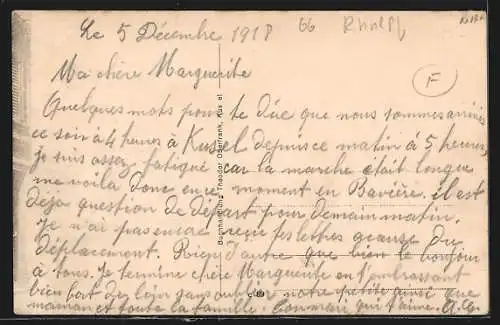 Le 5 Décembre 1918
66
F
Ma chère Marguerite
Quelques mots pour te dire que nous sommes arrivés
ce soir à 4 heures à Kusel depuis ce matin à 5 heures,
je suis assez fatigué car la marche était longue
me voila donc en ce moment en Bavière. il est
déja question de départ pour demain matin.
Je n'ai pas encore reçu tes lettres a cause du
déplacement. Rien d'autre que bien le bonjour
à tous. Je termine chère Marguerite en t'embrassant
bien fort de loin sans oublier notre petite ainsi que
maman et toute la famille. Ton mari qui t'aime. A.
Buchhandlung Theodor Odermann, Kusel